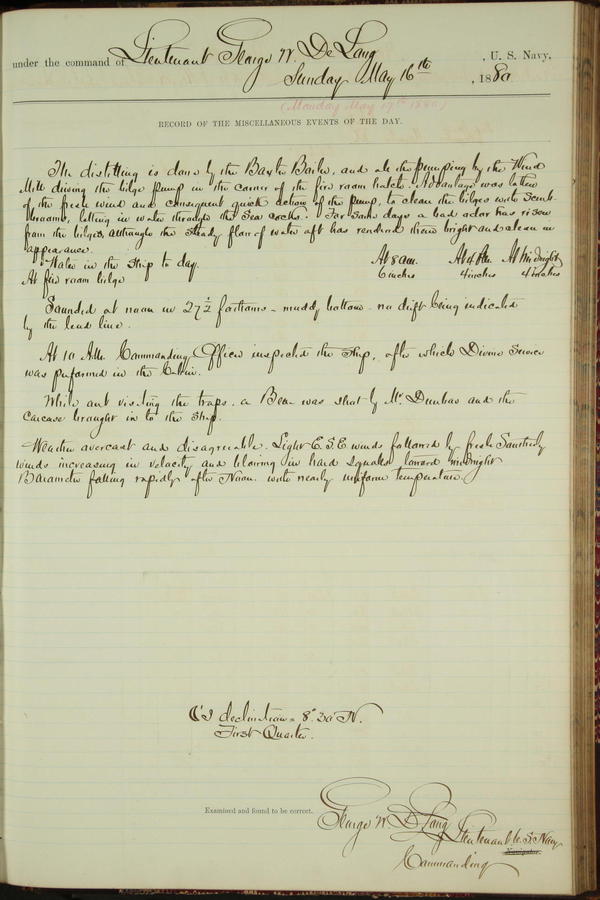 under the command of Lieutenant George W. De Long, U. S. Navy,
Sunday May 16th, 1880
(Monday May 17th 1880)
RECORD OF THE MISCELLANEOUS EVENTS OF THE DAY.
The distilling is done by the Baxter Boiler, and all the pumping by the Wind
Mill driving the bilge pump in the corner of the fire room hatch. Advantage was taken
of the fresh wind and consequent quick action of the pump, to clean the bilges with scrub
brooms, letting in water through the Sea cocks. For some days a bad odor has risen
from the bilges, although the steady flow of water aft has rendered them bright and clean in
appearance.
Water in the ship to day. At 8 am. At 4 PM. At Midnight
At fire room bilge 6 inches 4 inches 4 inches
Sounded at noon in 27 1/2 fathoms - muddy bottom - no drift being indicated
by the lead line.
At 10 AM. Commanding Officer inspected the Ship, after which Divine Service
was performed in the Cabin.
While out visiting the traps. a Bear was shot by Mr Dunbar and the
carcase brought in to the Ship.
Weather overcast and disagreeable. Light E.S.E. winds followed by fresh Southerly
winds increasing in velocity and blowing in hard squalls toward midnight
Barometer falling rapidly after Noon. with nearly uniform temperature.
☾'s declination = 8° 30' N.
First Quarter.
Examined and found to be correct.
George W. De Long Lieutenant U. S. Navy
Navigator.
Commanding